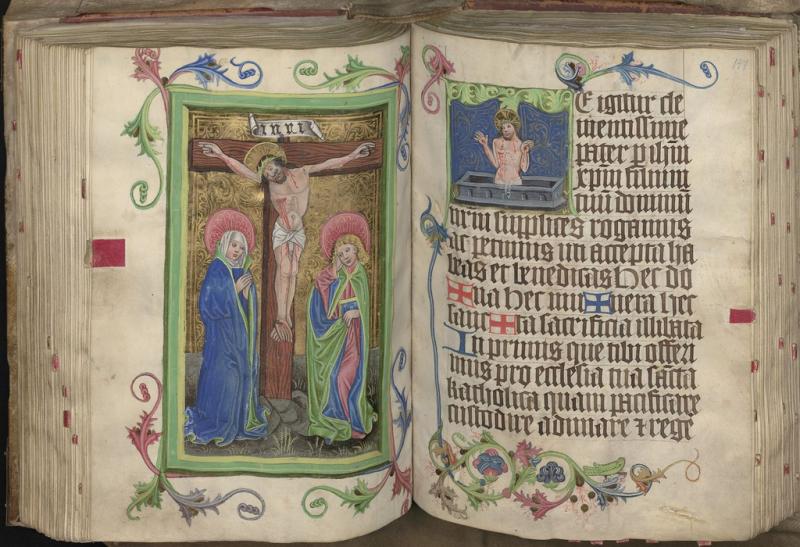 inri
E igitur cle
mentissime
pater p ihm
xpm filium
tuum dominu
nrm supplices rogamus
ac petimus uti accepta ha
beas et benedicas Hec do
✠ na hec mu ✠ nera hec
san ✠ cta sacrificia illibata
In primis que tibi offeri
mus pro ecclesia tua scta
katholica quam pacificare
custodire adunare ⁊ rege